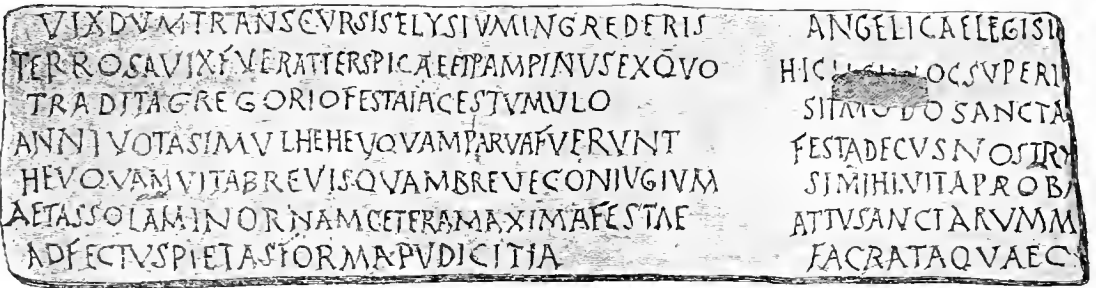 VIXDVMTRANSCVRSISELYSIVMINGREDERIS
TERROSAVIXFVERATTERSPICAEETPAMPINVSEXQVO
TRADITAGREGORIOFESTAIACESTVMVLO
ANNIVOTASIMVLHEHEVQVAMPARVAFVERVNT
HEVQVAMVITABREVISQVAMBREVECONIVGIVM
AETASSOLAMINORNAMCETERAMAXIMAFESTAE
ADFECTVSPIETASFORMAPVDICITIA
ANGELICAELEGISD
HIC OCSVPERI
SITMODOSANCTA
FESTADECVSNOSTRV
SIMIHIVITAPROBA
ATTVSANCTARVMM
FACRATAQVAEC